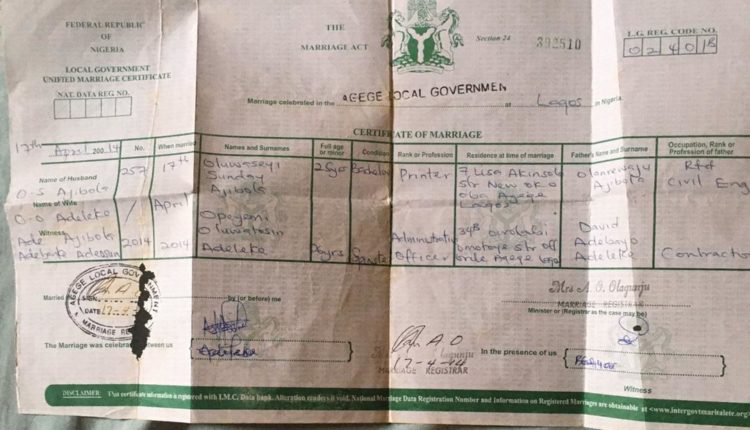 FEDERAL REPUBLIC
OF
NIGERIA
LOCAL GOVERNMENT
UNIFIED MARRIAGE CERTIFICATE
NAT. DATA REG. NO.
THE
MARRIAGE ACT
Section-24
392510
L.G. REG. CODE NO.
Marriage celebrated in the AGEGE LOCAL GOVERNMEN at Lagos in Nigeria.
CERTIFICATE OF MARRIAGE
17th April 2014
No. When married Names and Surnames Full age or minor Condition Rank or Profession Residence at time of marriage Father's Name and Surname Occupation, Rank or Profession of father
Name of Husband
O.S Ajibola
257 17th
Oluwaseyi
Sunday
Ajibola
Bachelor
Printer
Agege
Lagos
Olanrewaju
Ajibola
Rtd
Civil Eng
Name of Wife
O.O Adeleke
/ April
Opeyemi
Oluwatosin
Adeleke
Spinster
Administrative
Officer
David
Adebayo
Adeleke
Contractor
Witness
Ade Ajibola
2014 2014
Married
by (or before) me
AGEGE LOCAL GOVERNMENT
SIGN
DATE 17-4
MARRIAGE
Mrs A. O. Olagunju
MARRIAGE REGISTRAR
Minister or (Registrar as the case may be)
The Marriage was celebrated between us
Adeleke
A O
17-4-14
MARRIAGE REGISTRAR
In the presence of us
Witness
DISCLAIMER: This certificate information is registered with I.M.C. Data bank. Alteration renders it void. National Marriage Data Registration Number and Information on Registered Marriages are obtainable at <www.intergovtmaritalete.org>